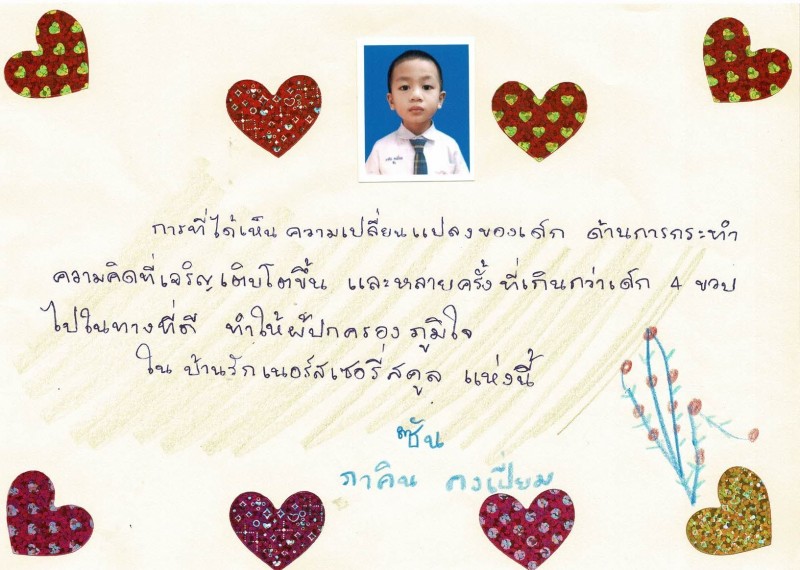 การที่ได้เห็น ความเปลี่ยนแปลงของเด็ก ด้านการกระทำ
ความคิดที่เจริญเติบโตขึ้น และหลายครั้งที่เกินกว่าเด็ก 4 ขวบ
ไปในทางที่ดี ทำให้ผู้ปกครอง ภูมิใจ
ใน บ้านรักเนอร์สเซอรี่สคูล แห่งนี้
ซัน
ภาคิน คงเปี่ยม